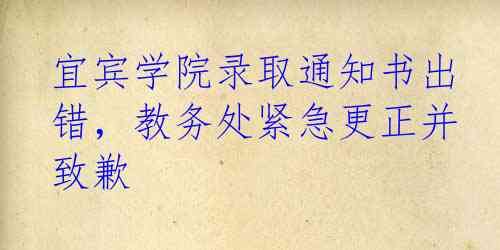 宜宾学院录取通知书出
错，教务处紧急更正并
致歉